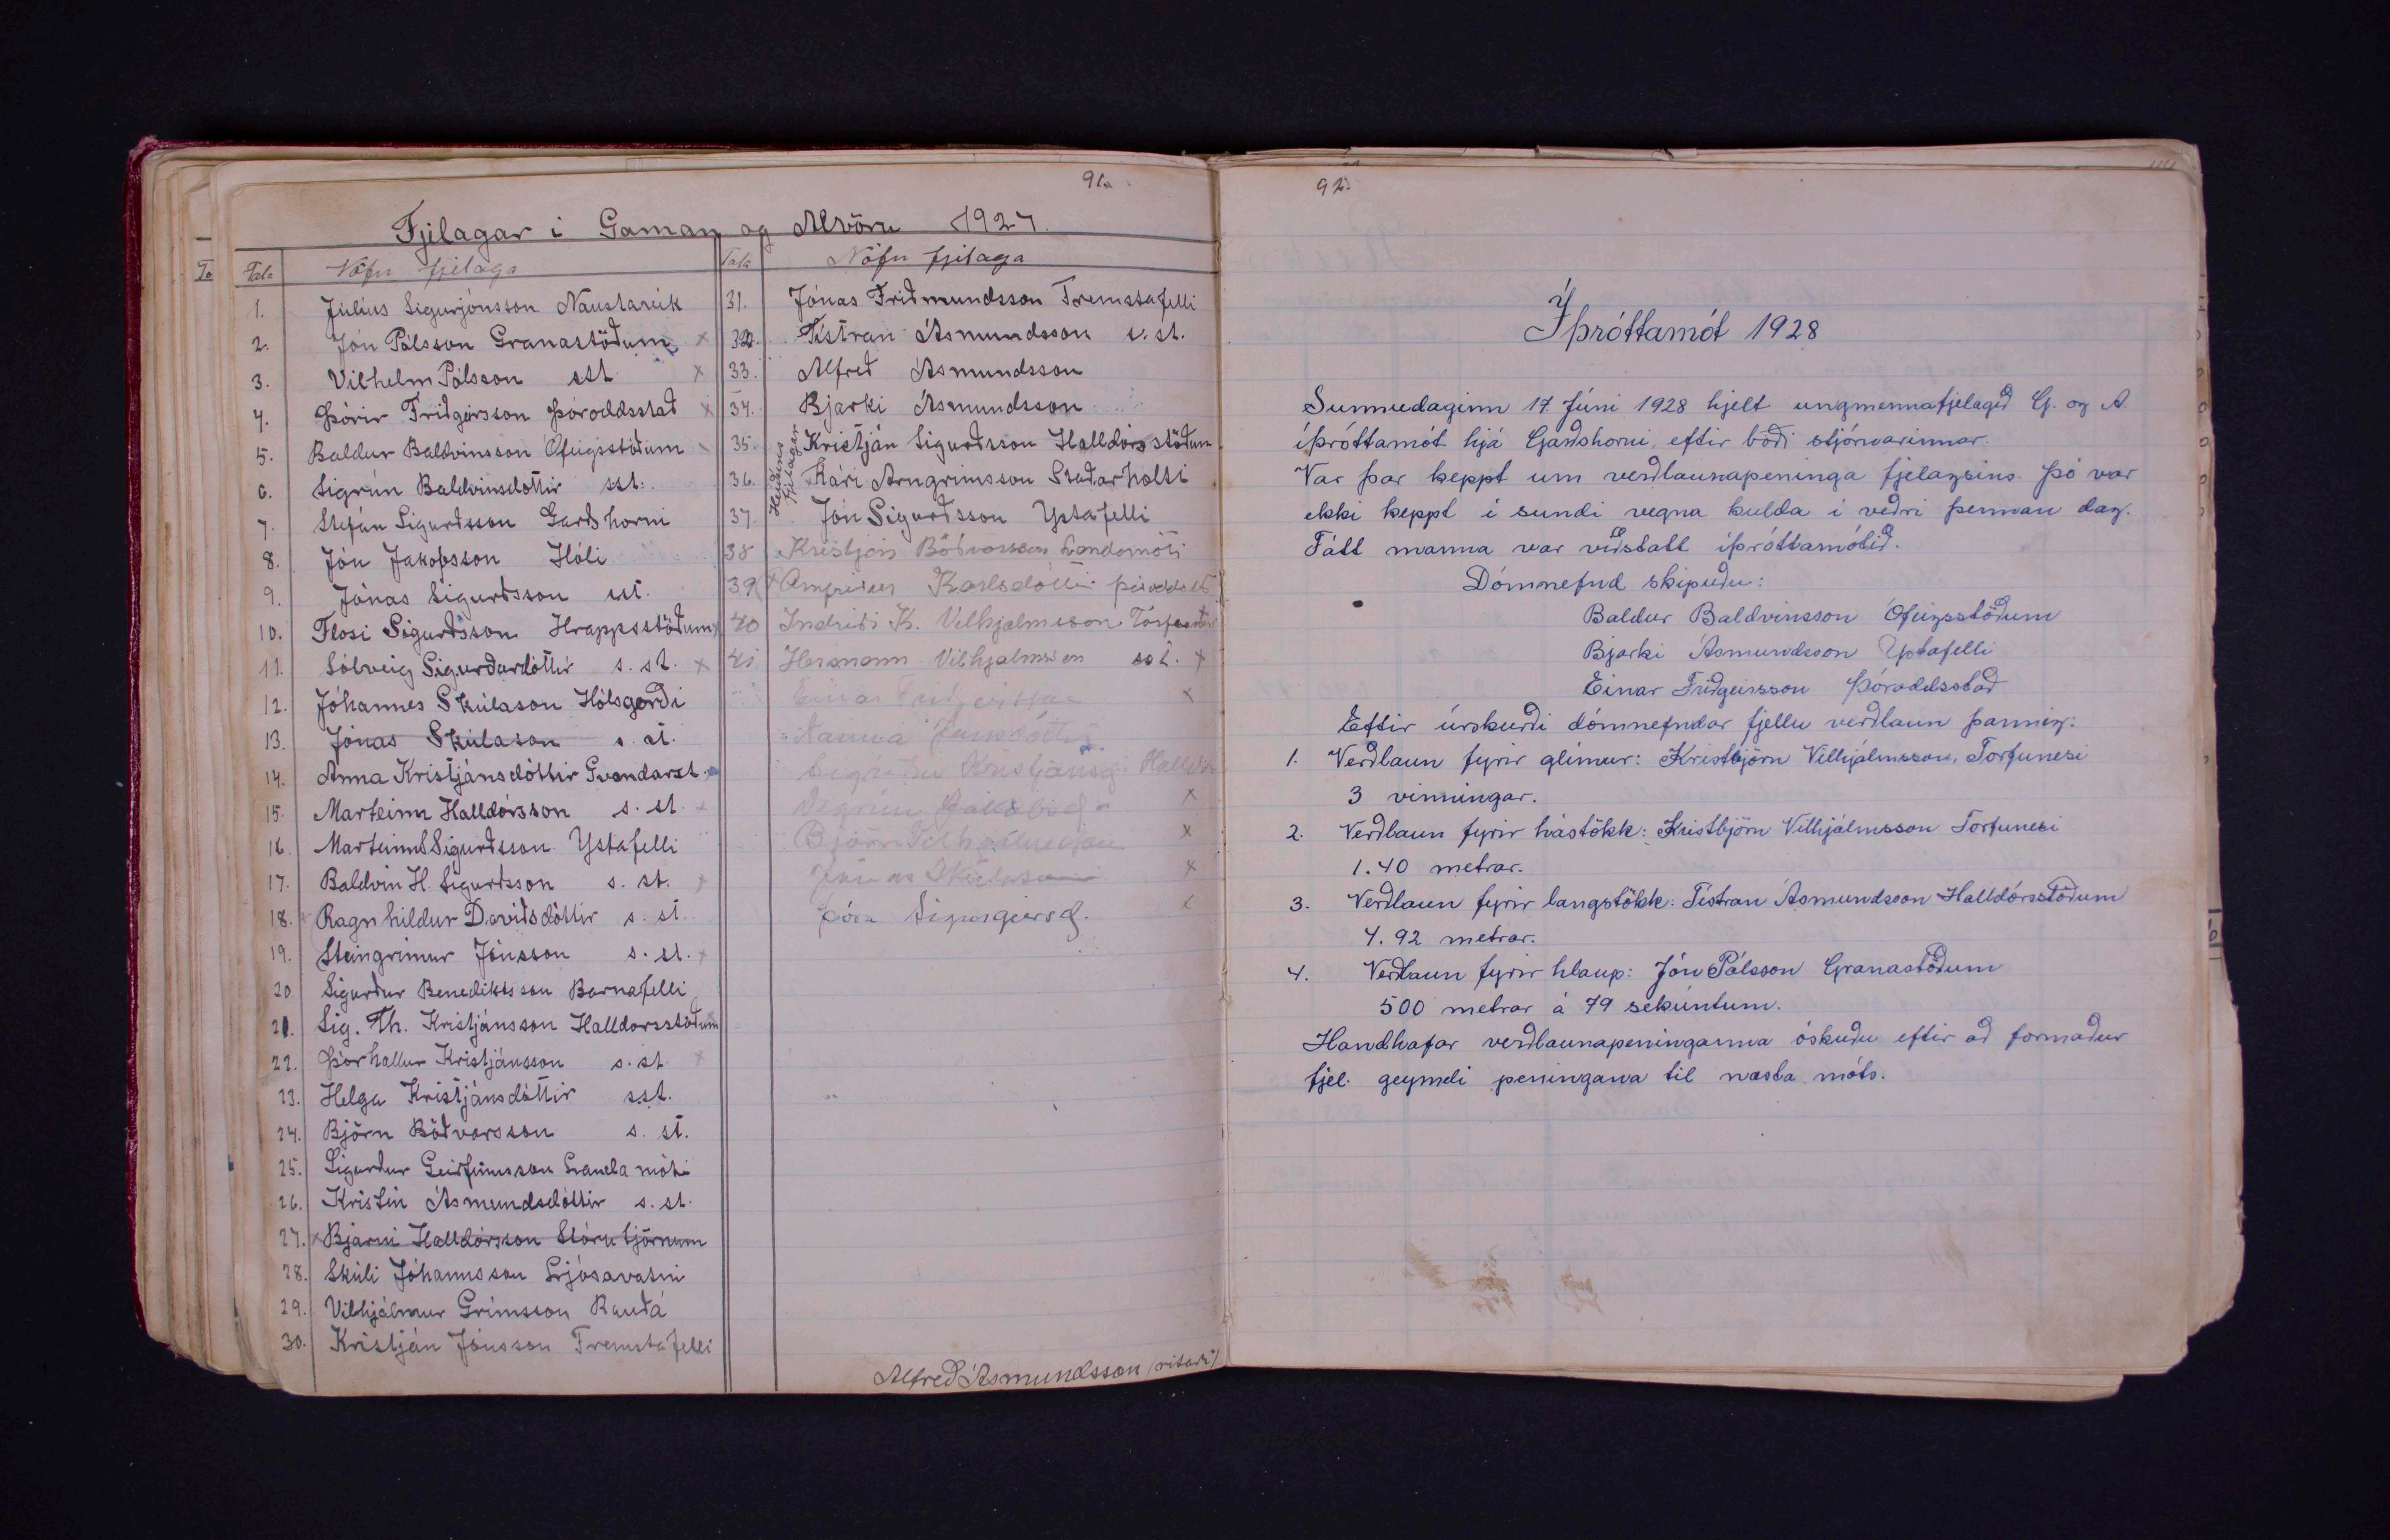 91.
Fjelagar i Gaman og Alvöru 1927.
Tala Nöfn fjelaga
1. Júlíus Sigurjónsson Naustavík
2. Jón Pálsson Granastöðum x
3. Vilhelm Pálsson sst. x
4. Þórir Friðgeirsson Þóroddsstað x
5. Baldur Baldvinsson Ófeigsstöðum
6. Sigrún Baldvinsdóttir sst.
7. Stefán Sigurðsson Garðshorni
8. Jón Jakobsson Hóli
9. Jónas Sigurðsson sst.
10. Flosi Sigurðsson Hrappsstöðum
11. Sólveig Sigurðardóttir s. st. x
12. Jóhannes Skúlason Hólsgerði
13. Jónas Skúlason s. st.
14. Anna Kristjánsdóttir Gvendarst.
15. Marteinn Halldórsson s. st.
16. Marteinn S Sigurðsson Ystafelli
17. Baldvin H. Sigurðsson s. st.
18. Ragnhildur Davíðsdóttir s. st.
19. Steingrímur Jónsson s. st.
20. Sigurður Benediktsson Barnafelli
21. Sig. Th. Kristjánsson Halldorsstöðum
22. Þórhallur Kristjánsson s. st.
23. Helga Kristjánsdóttir sst.
24. Björn Böðvarsson s. st.
25. Sigurður Geirfinnsson Landamóti
26. Kristín Ásmundsdóttir s. st.
27. x Bjarni Halldórsson Stórutjörnum
28. Skúli Jóhannsson Ljósavatni
29. Vilhjálmur Grímsson Rauðá
30. Kristján Jónsson Fremstafelli
Tala Nöfn fjelaga
31. Jónas Friðmundsson Fremstafelli
32. Tístran Ásmundsson s. st.
33. Alfreð Ásmundsson
34. Bjarki Ásmundsson
Heiðurs fjelagar
35. Kristján Sigurðsson Halldórsstöðum
36. Kári Arngrímsson Staðarholti
37. Jón Sigurðsson Ystafelli
38 Kristján Böðvarsson Landamóti
39 Arnfríður Karlsdóttir Þóroddsst
40 Indriði K. Vilhjálmsson Torfunesi
41 Hermann Vilhjálmsson sst. x
Einar Friðgeirsson x
Nanna Jónsdóttir
Sigríður Kristjánsd. Halldór
Sigrún Jakobsd. x
Björn Vilhjálmsson x
Jónas Skúlason x
Þóra Sigurgeirsd.
Alfreð Ásmundsson (ritari)
92.
Íþróttamót 1928
Sunnudaginn 17. Júni 1928 hjelt ungmennafjelagið G. og A.
íþróttamót hjá Garðshorni, eftir boði stjórnarinnar.
Var þar keppt um verðlaunapeninga fjelagsins. Þó var
ekki keppt í sundi vegna kulda í veðri þennan dag.
Fátt manna var viðstatt íþróttamótið.
Dómnefnd skipuðu:
Baldur Baldvinsson Ófeigsstöðum
Bjarki Ásmundsson Ystafelli
Einar Friðgeirsson Þóroddsstað
Eftir úrskurði dómnefndar fjellu verðlaun þannig:
1. Verðlaun fyrir glímur: Kristbjörn Vilhjálmsson, Torfunesi
3 vinningar.
2. Verðlaun fyrir hástökk: Kristbjörn Vilhjálmsson Torfunesi
1.40 metrar.
3. Verðlaun fyrir langstökk: Tístran Ásmundsson Halldórsstöðum
4.92 metrar.
4. Verðlaun fyrir hlaup: Jón Pálsson Granastöðum
500 metrar á 79 sekúntum.
Handhafar verðlaunapeninganna óskuðu eftir að formaður
fjel. geymdi peningana til næsta móts.